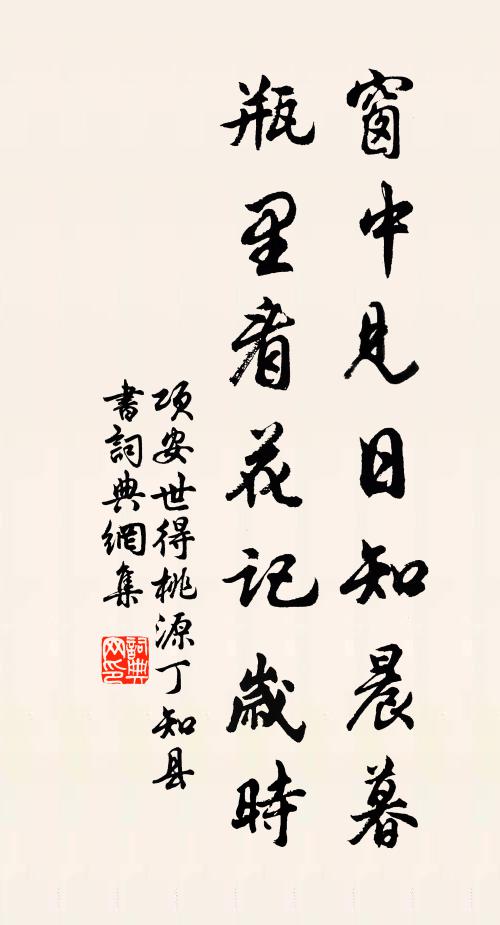 窗中見日知晨暮
瓶里看花記歲時
項安世得桃源丁知县
書詞典網集
詞典网印